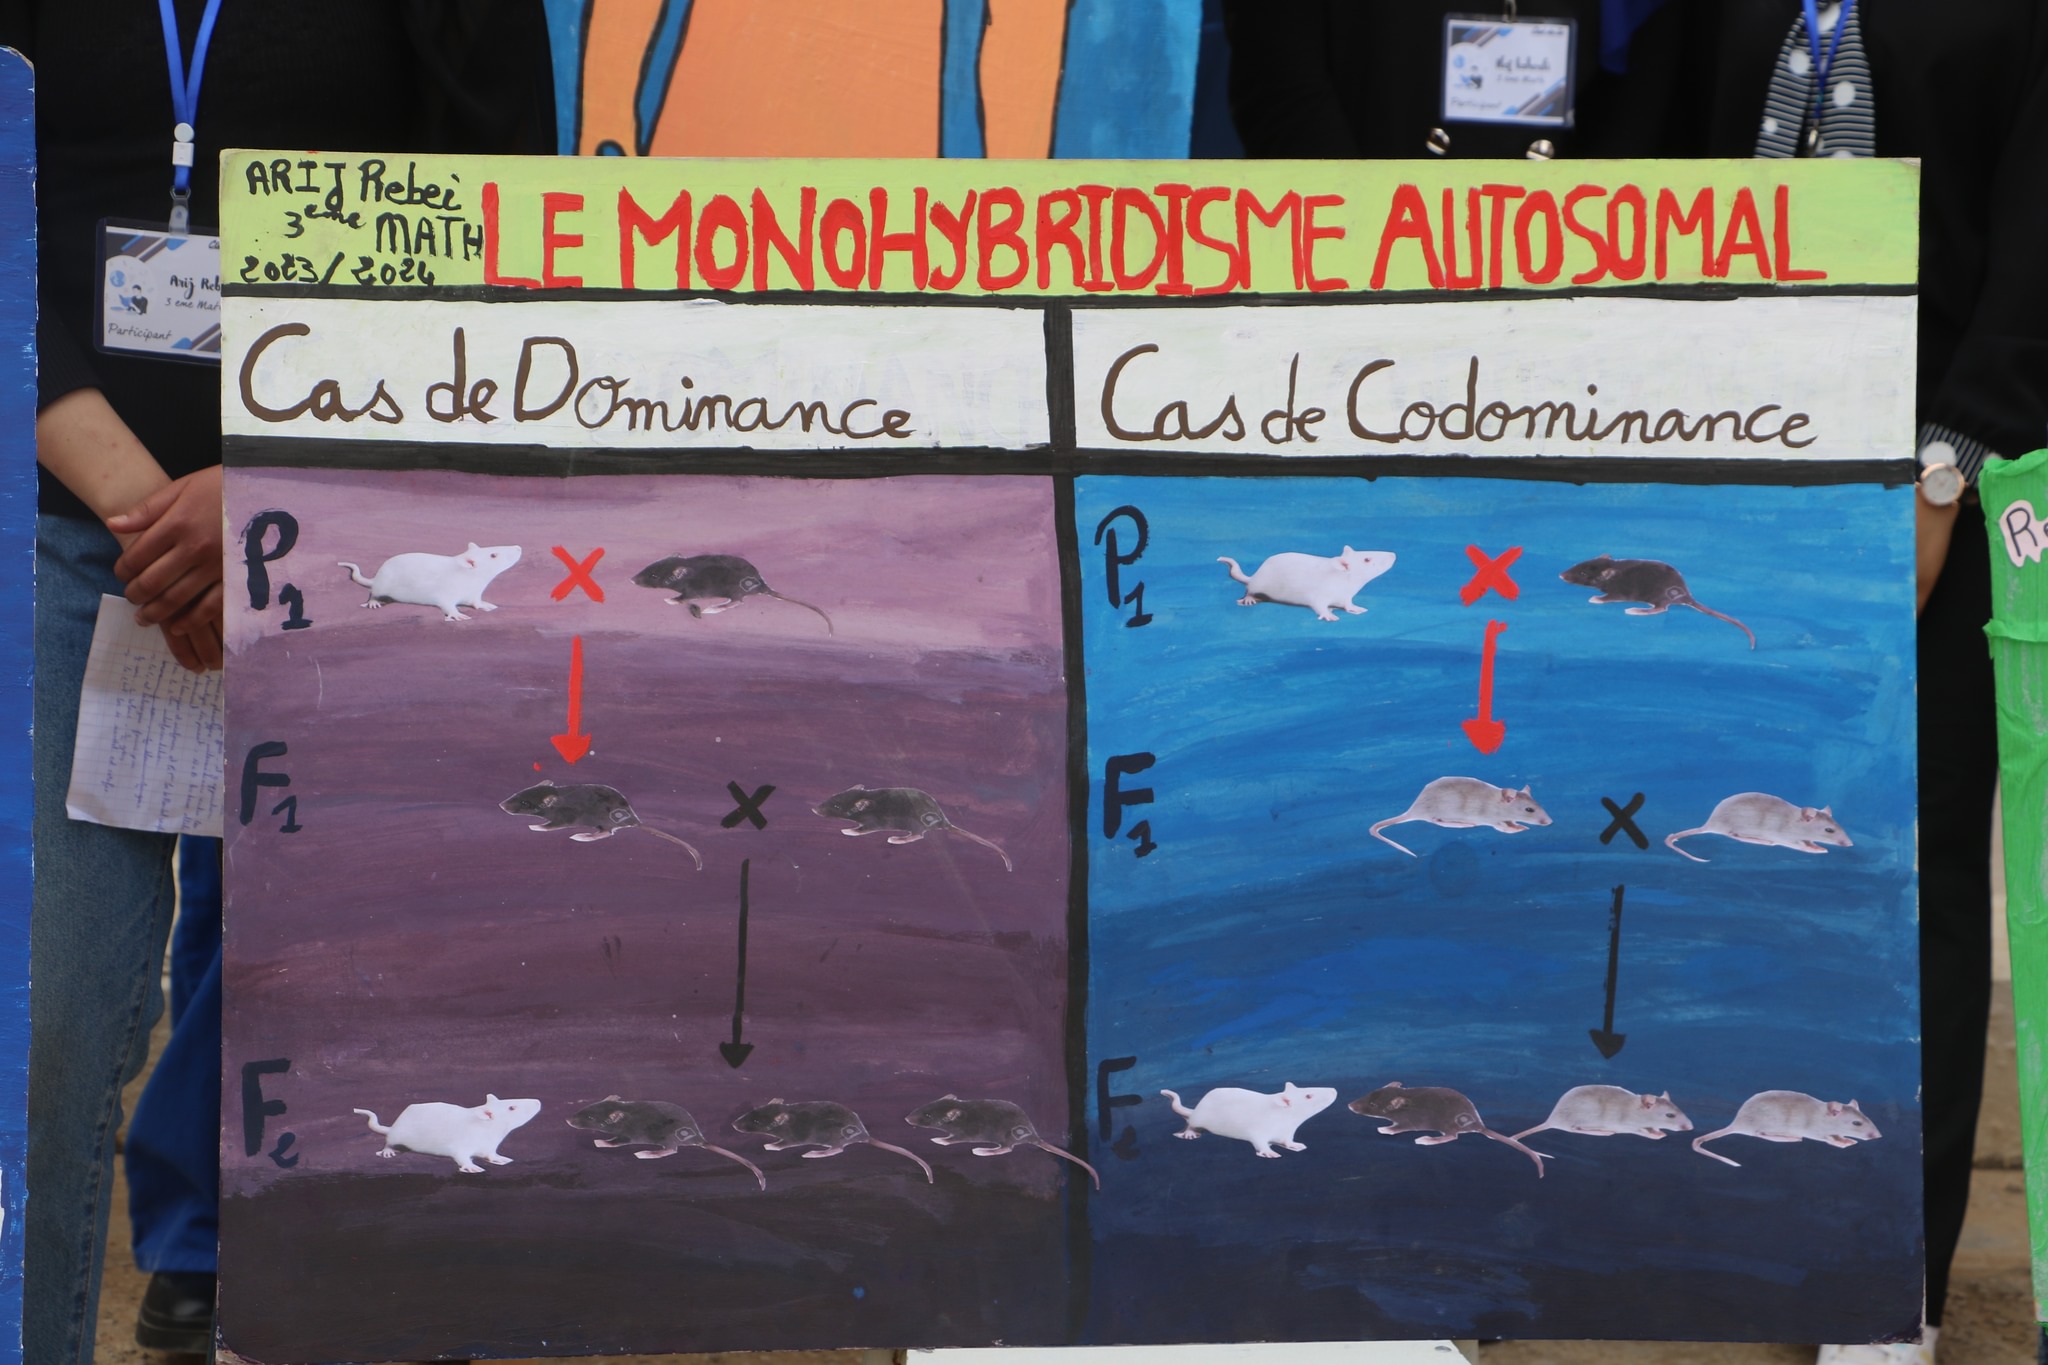 ARIJ Rebei
3eme MATH
2023/2024
LE MONOHYBRIDISME AUTOSOMAL
Cas de Dominance
Cas de Codominance
P1
X
P1
X
F1
X
F1
X
F2
F2
Arij Reb
3 eme Mat
Participant
3 eme Math
Participant
Re